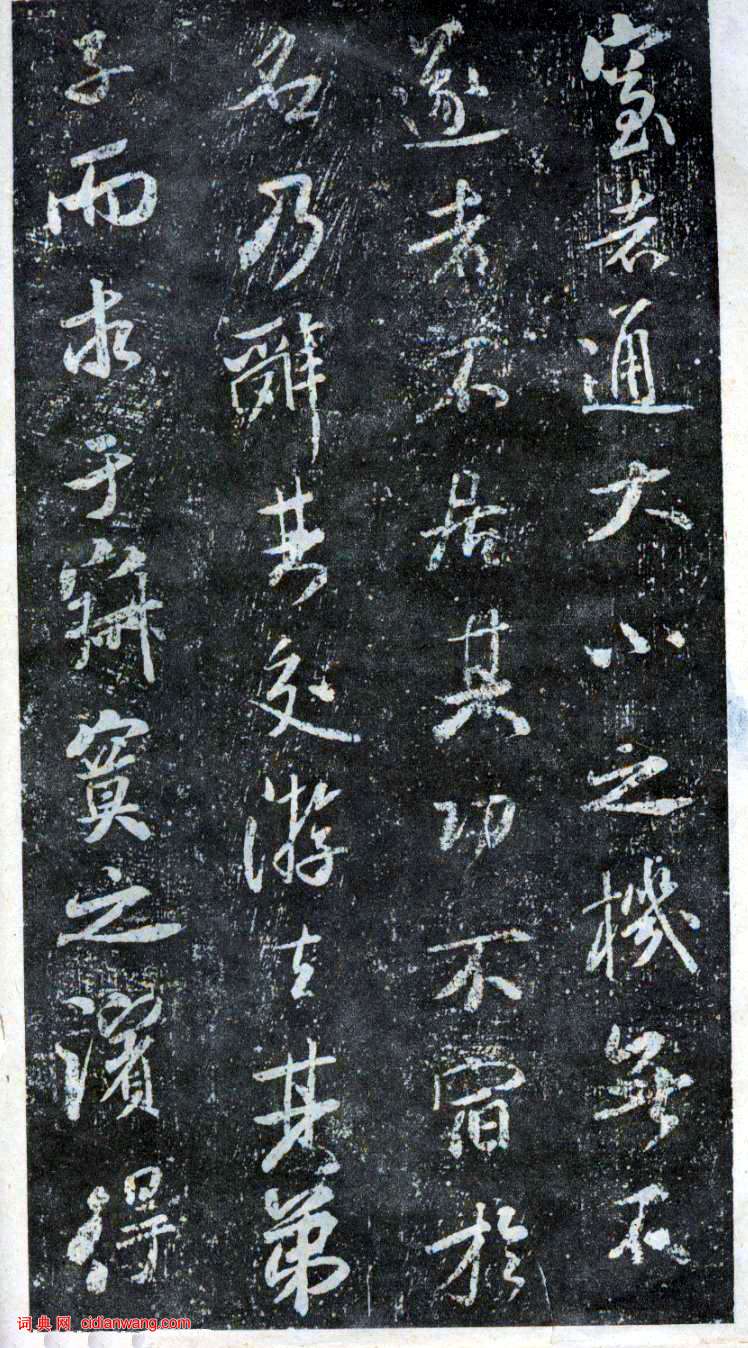 窒者通大小之機無不
遂者不居其功不宿於
名乃辭其交游去其弟
子而求于寂寞之濱得
词典网 cidianwang.com